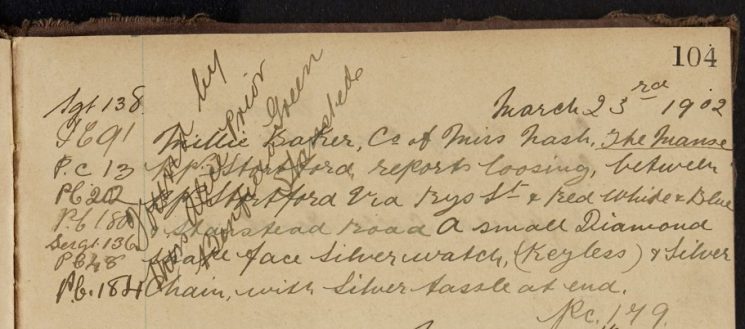 104
March 23rd 1902
Sgt 138
Millie Baker, Co of Miss Nash, The Manse
P.C 13
Bp. Stortford, reports loosing, between
PC 202
Bp. Stortford Via Rys St & Red White & Blue
P.C 180
Stanstead Road A small Diamond
Sergt 136
face Silver watch, (Keyless) & Silver
PC 48
P.C. 184
Chain, with Silver tassle at end.
P.C. 179.
Found by
Miss Prior
Green
Stanstead